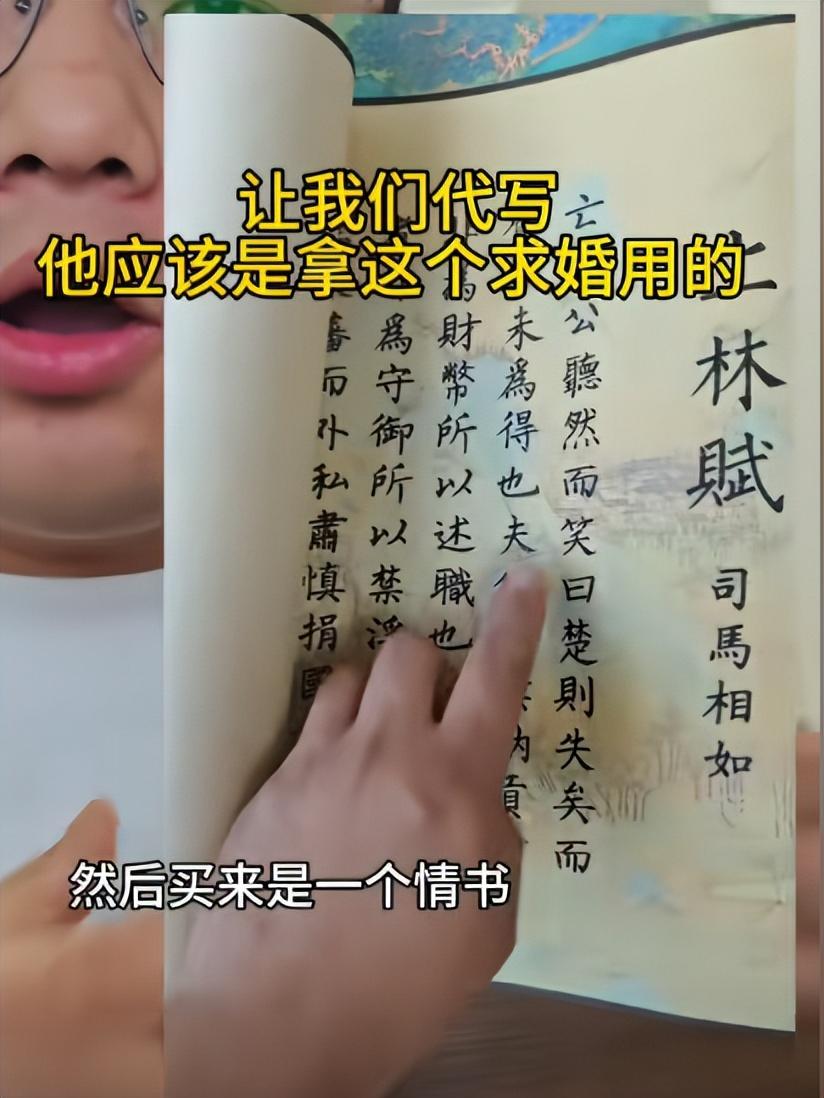 让我们代写
他应该是拿这个求婚用的
上林賦
司馬相如
亡公聽然而笑曰楚則失矣而
未爲得也夫納貢
爲財幣所以述職也
爲守御所以禁淫
蕃而外私肅慎捐國
然后买来是一个情书